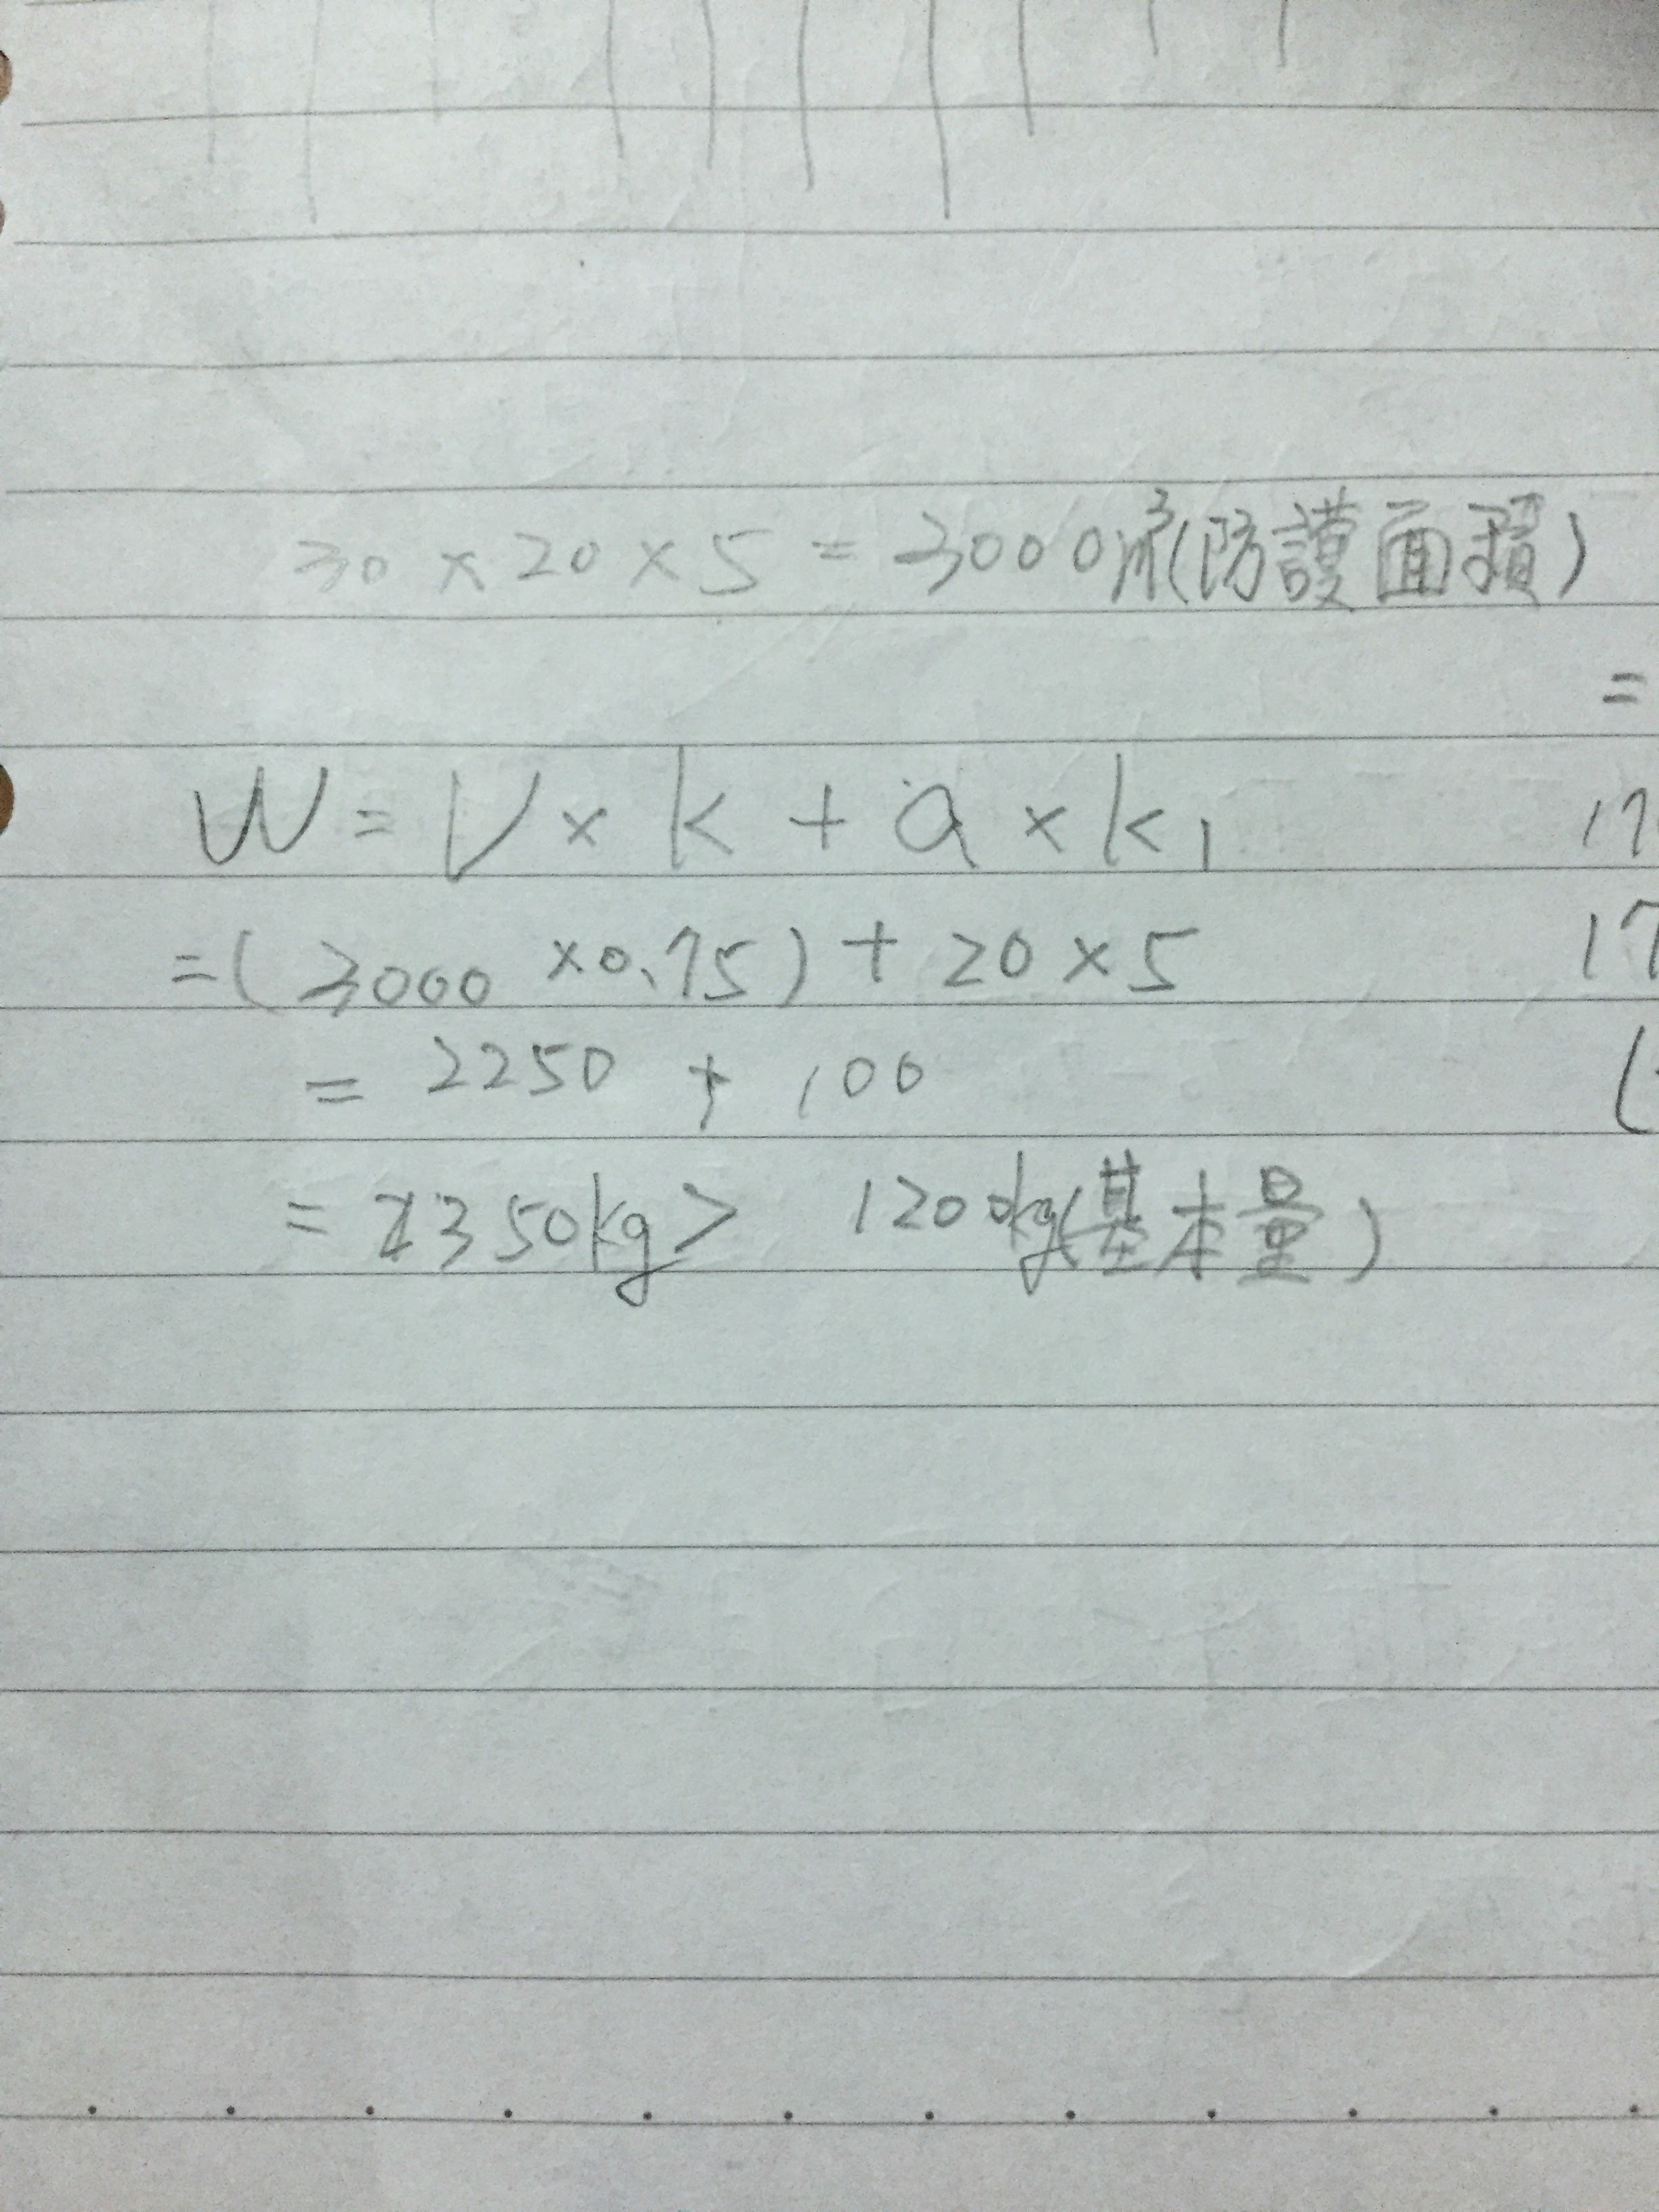 30 × 20 × 5 = 3000 m³(防護面積)
=
W = V × k + a × k₁
17
=( 3000 ×0.75) + 20 × 5
17
= 2250 + 100
(
= 2350kg > 1200kg(基本量)